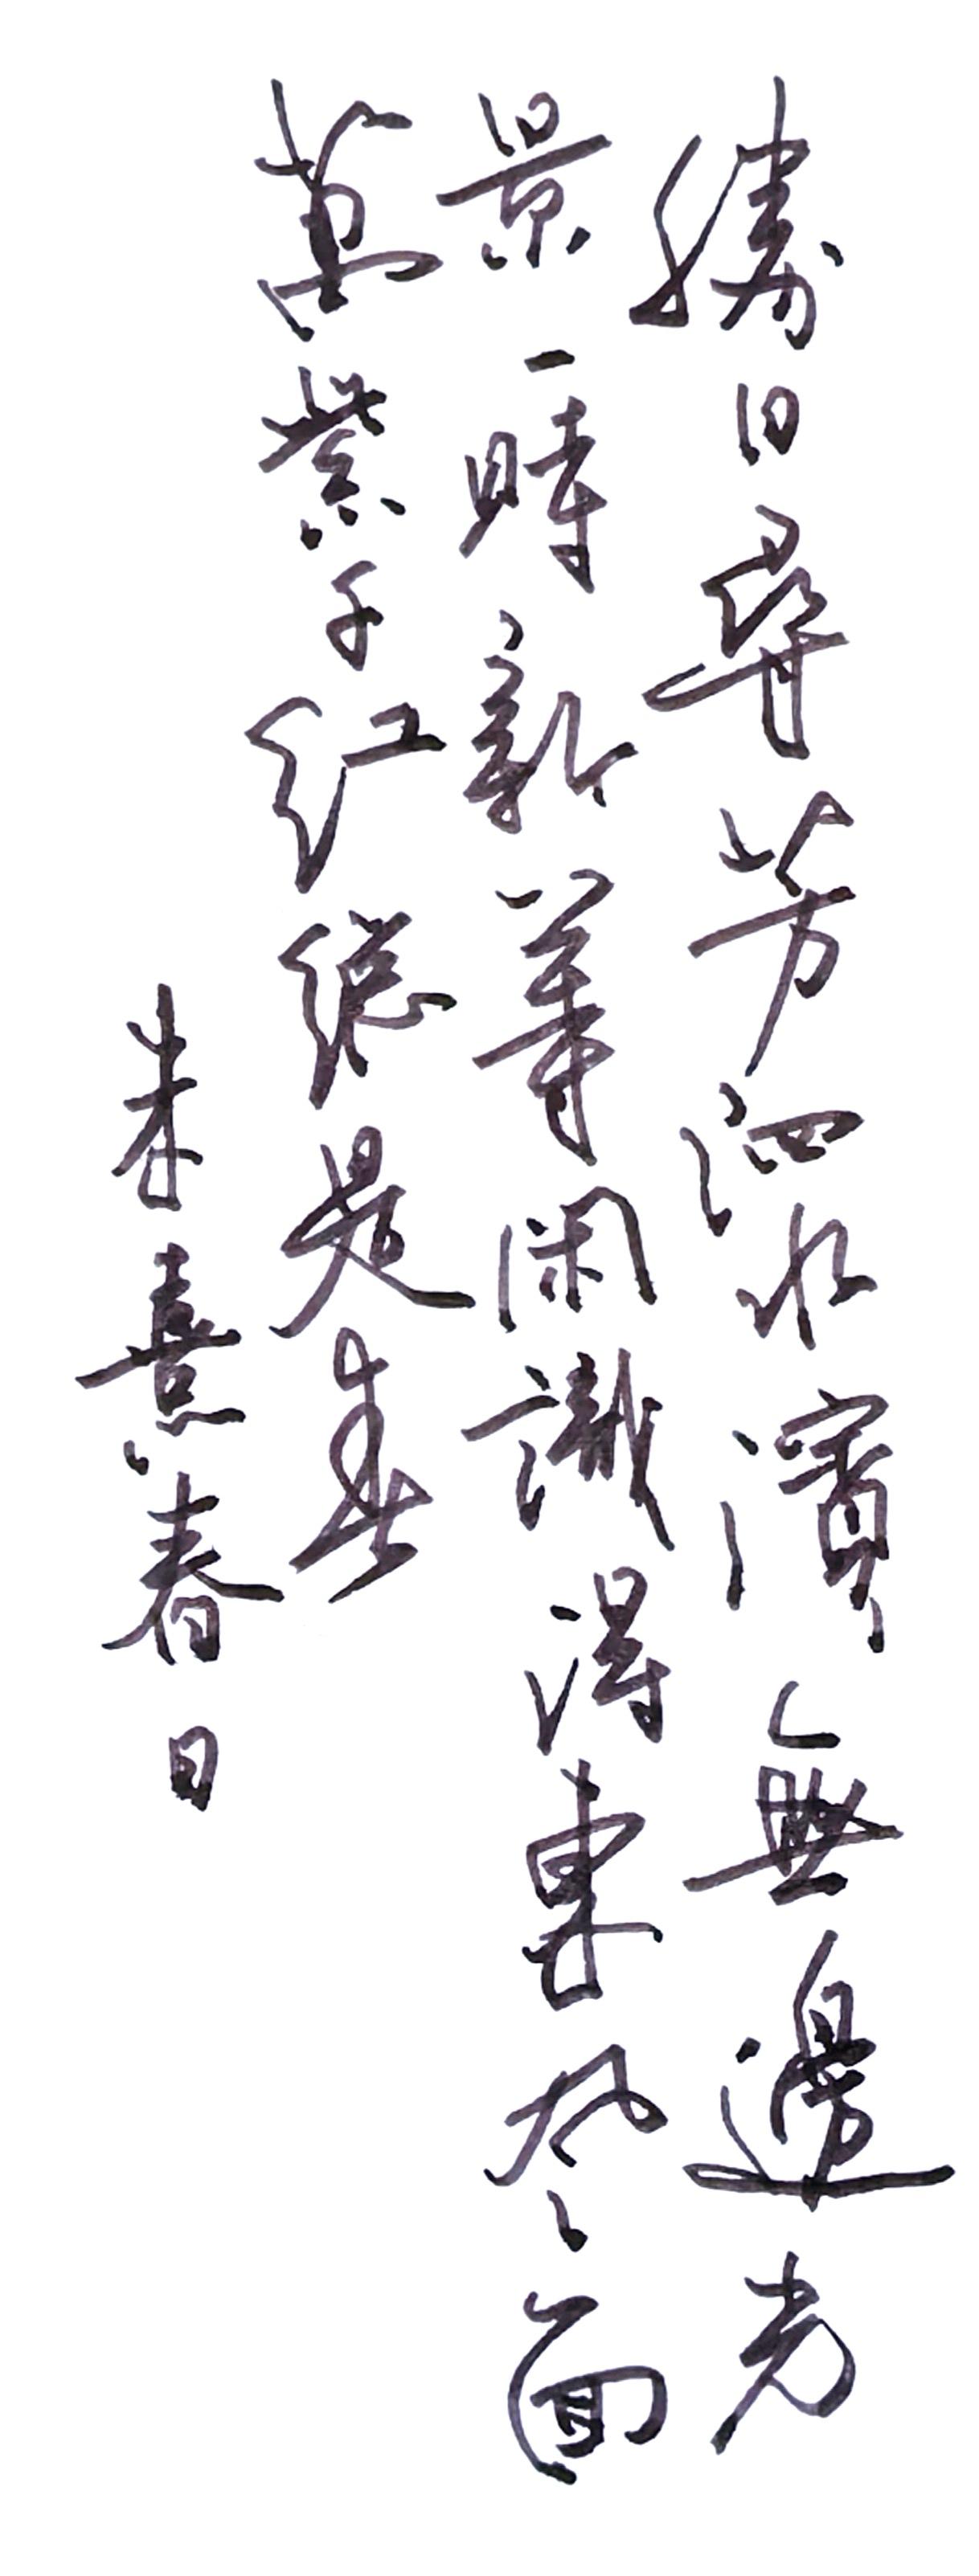 勝日尋芳泗水濱無邊光
景一時新等閑識得東風面
萬紫千红總是春
朱熹春日